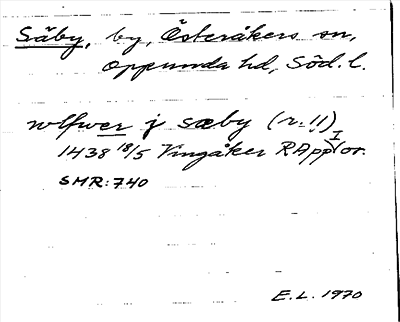 Säby, by, Österåkers sn,
Oppunda hd, Söd. l.
wlfwer j sæby (r. 11)
1438 18/5 Vingåker RApp I or.
SMR: 740
E.L. 1970